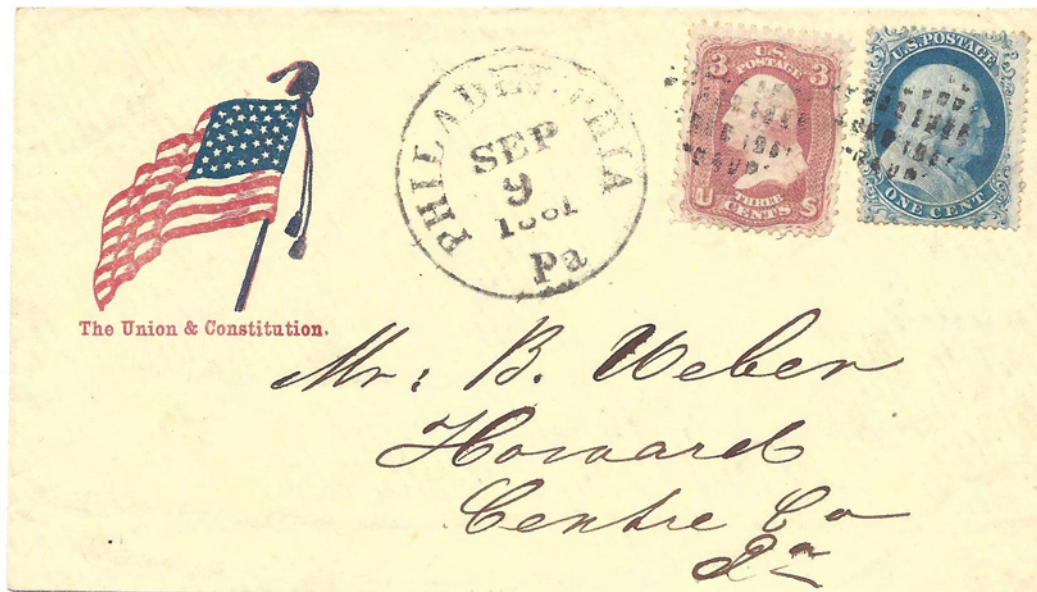 The Union & Constitution.
PHILADELPHIA
SEP
9
1861
Pa
3 U.S. POSTAGE 3
U THREE CENTS S
U.S. POSTAGE
ONE CENT
Mr: B. Weber
Howard
Centre Co
Pa